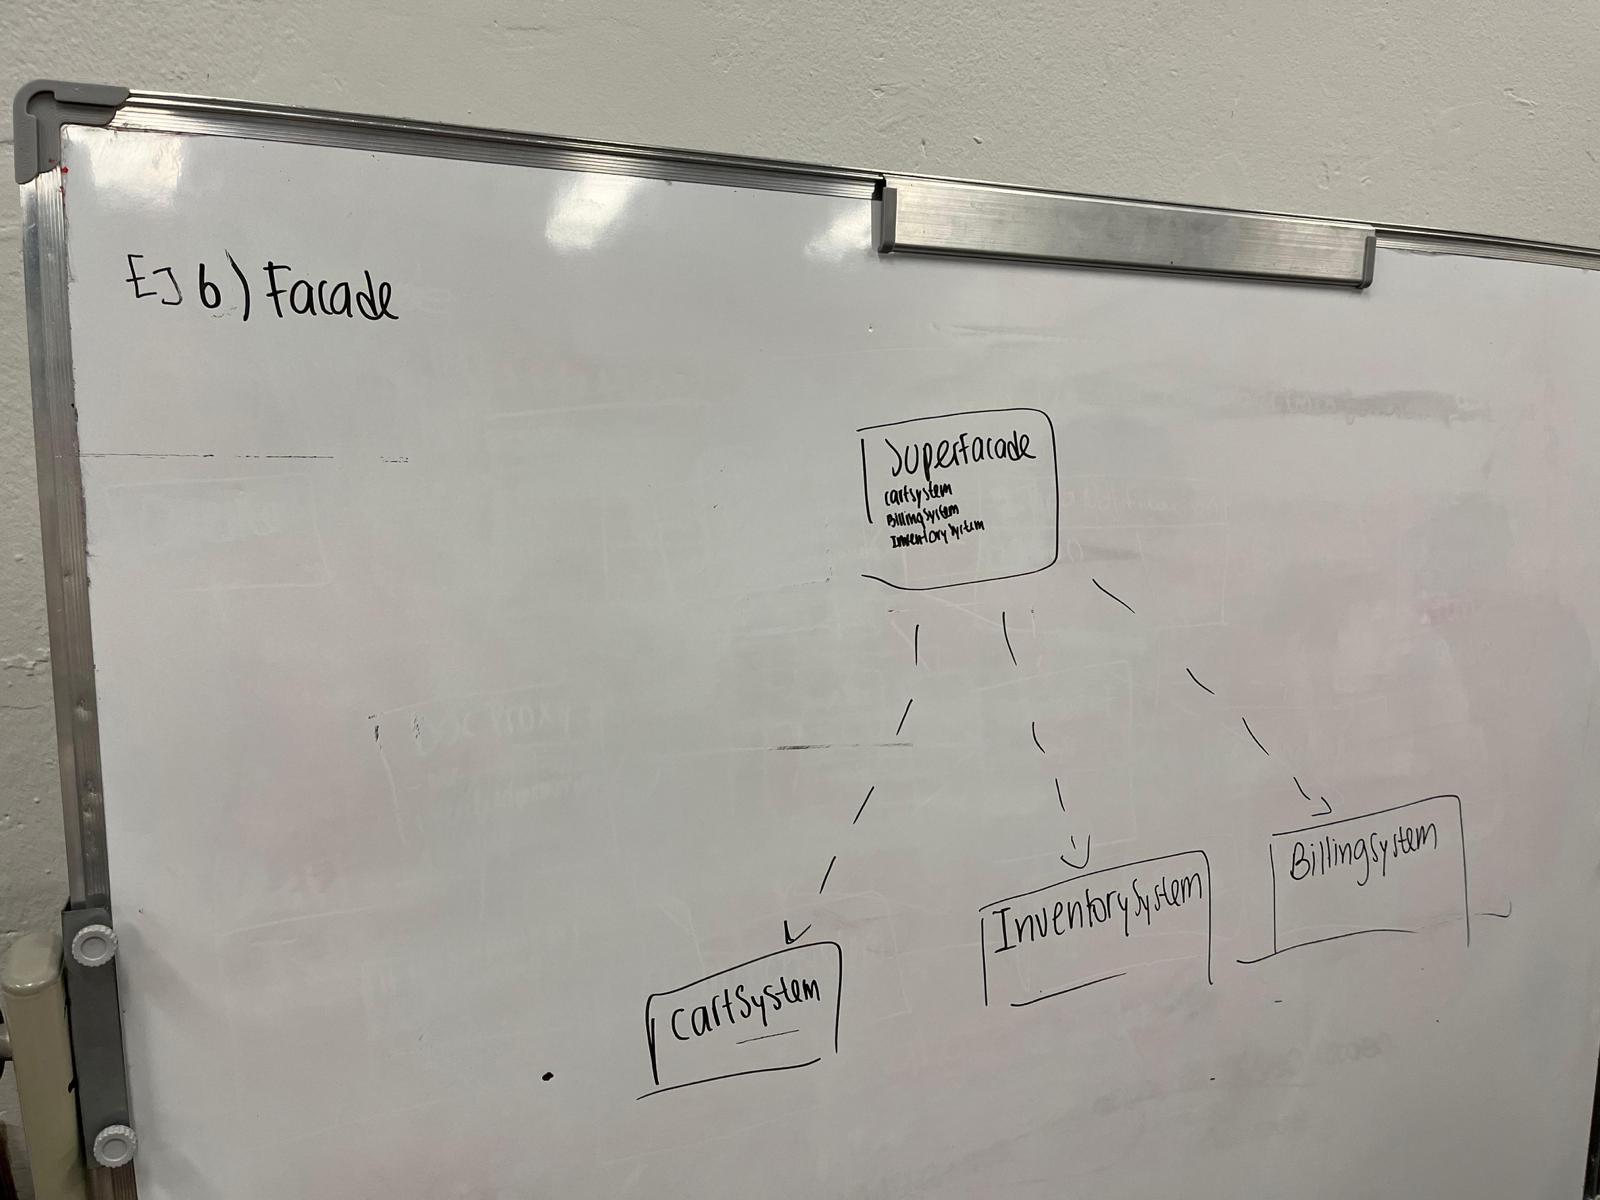 EJ 6) Facade
Superfacade
cartsystem
BillingSystem
InventorySystem
BillingSystem
InventorySystem
cartSystem